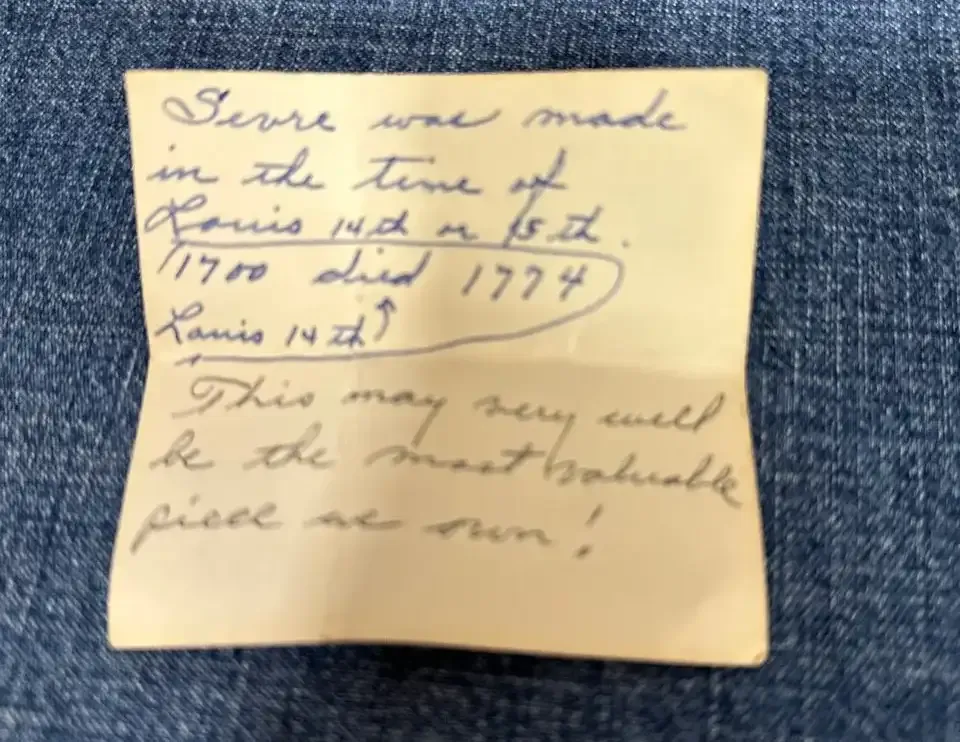 Sevre was made
in the time of
Louis 14th or 15th.
1700 died 1774
Louis 14th ↑
This may very well
be the most valuable
piece we own!